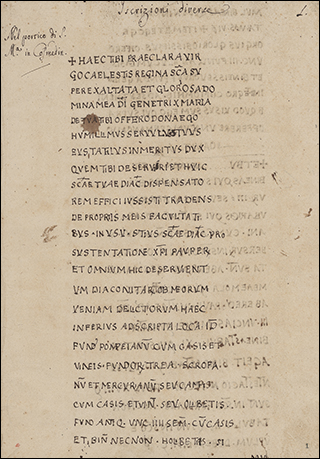 Iscrizioni diverse
Nel portico di S.
Mª in Cosmedin.
+ HAEC TIBI PRAECLARA VIR
GO CAELESTIS REGINA SC̄A SV
PER EXALTATA ET GLORIOSA DO
MINA MEA DI̅ GENETRIX MARIA
DE TVA TIBI OFFERO DONA EGO
HVMILLIMVS SERVVLVS TVVS
EVSTATIVS INMERITVS DVX
QVEM TIBI DESERVIRE ET HVIC
SCAE TVAE DIAC̄ DISPENSATO
REM EFFICI IVSSISTI TRADENS
DE PROPRIIS MEIS FACVLTATI
BVS · IN VSV · STIVS SCAE DIAC̄ PRO
SVSTENTATIONE XPI PAVPER
ET OMNIVM HIC DESERVIENT
VM DIACONITARVM OB MEORVM
VENIAM DELICTORVM HAEC
INFERIVS ADSCRIPTA LOCA ID
FVND POMPEIANV CVM CASIS ET
VINEIS FVNDOR
NV ET MERCVRANV SEV CANTIS
CVM CASIS ET VIN̄ · SEV OLIBETIS
FVND ANTIQ · VNC · IIII SEM · CV̄ CASIS
ET, BIN̄ NEC NON · HOLIBETIS · SI